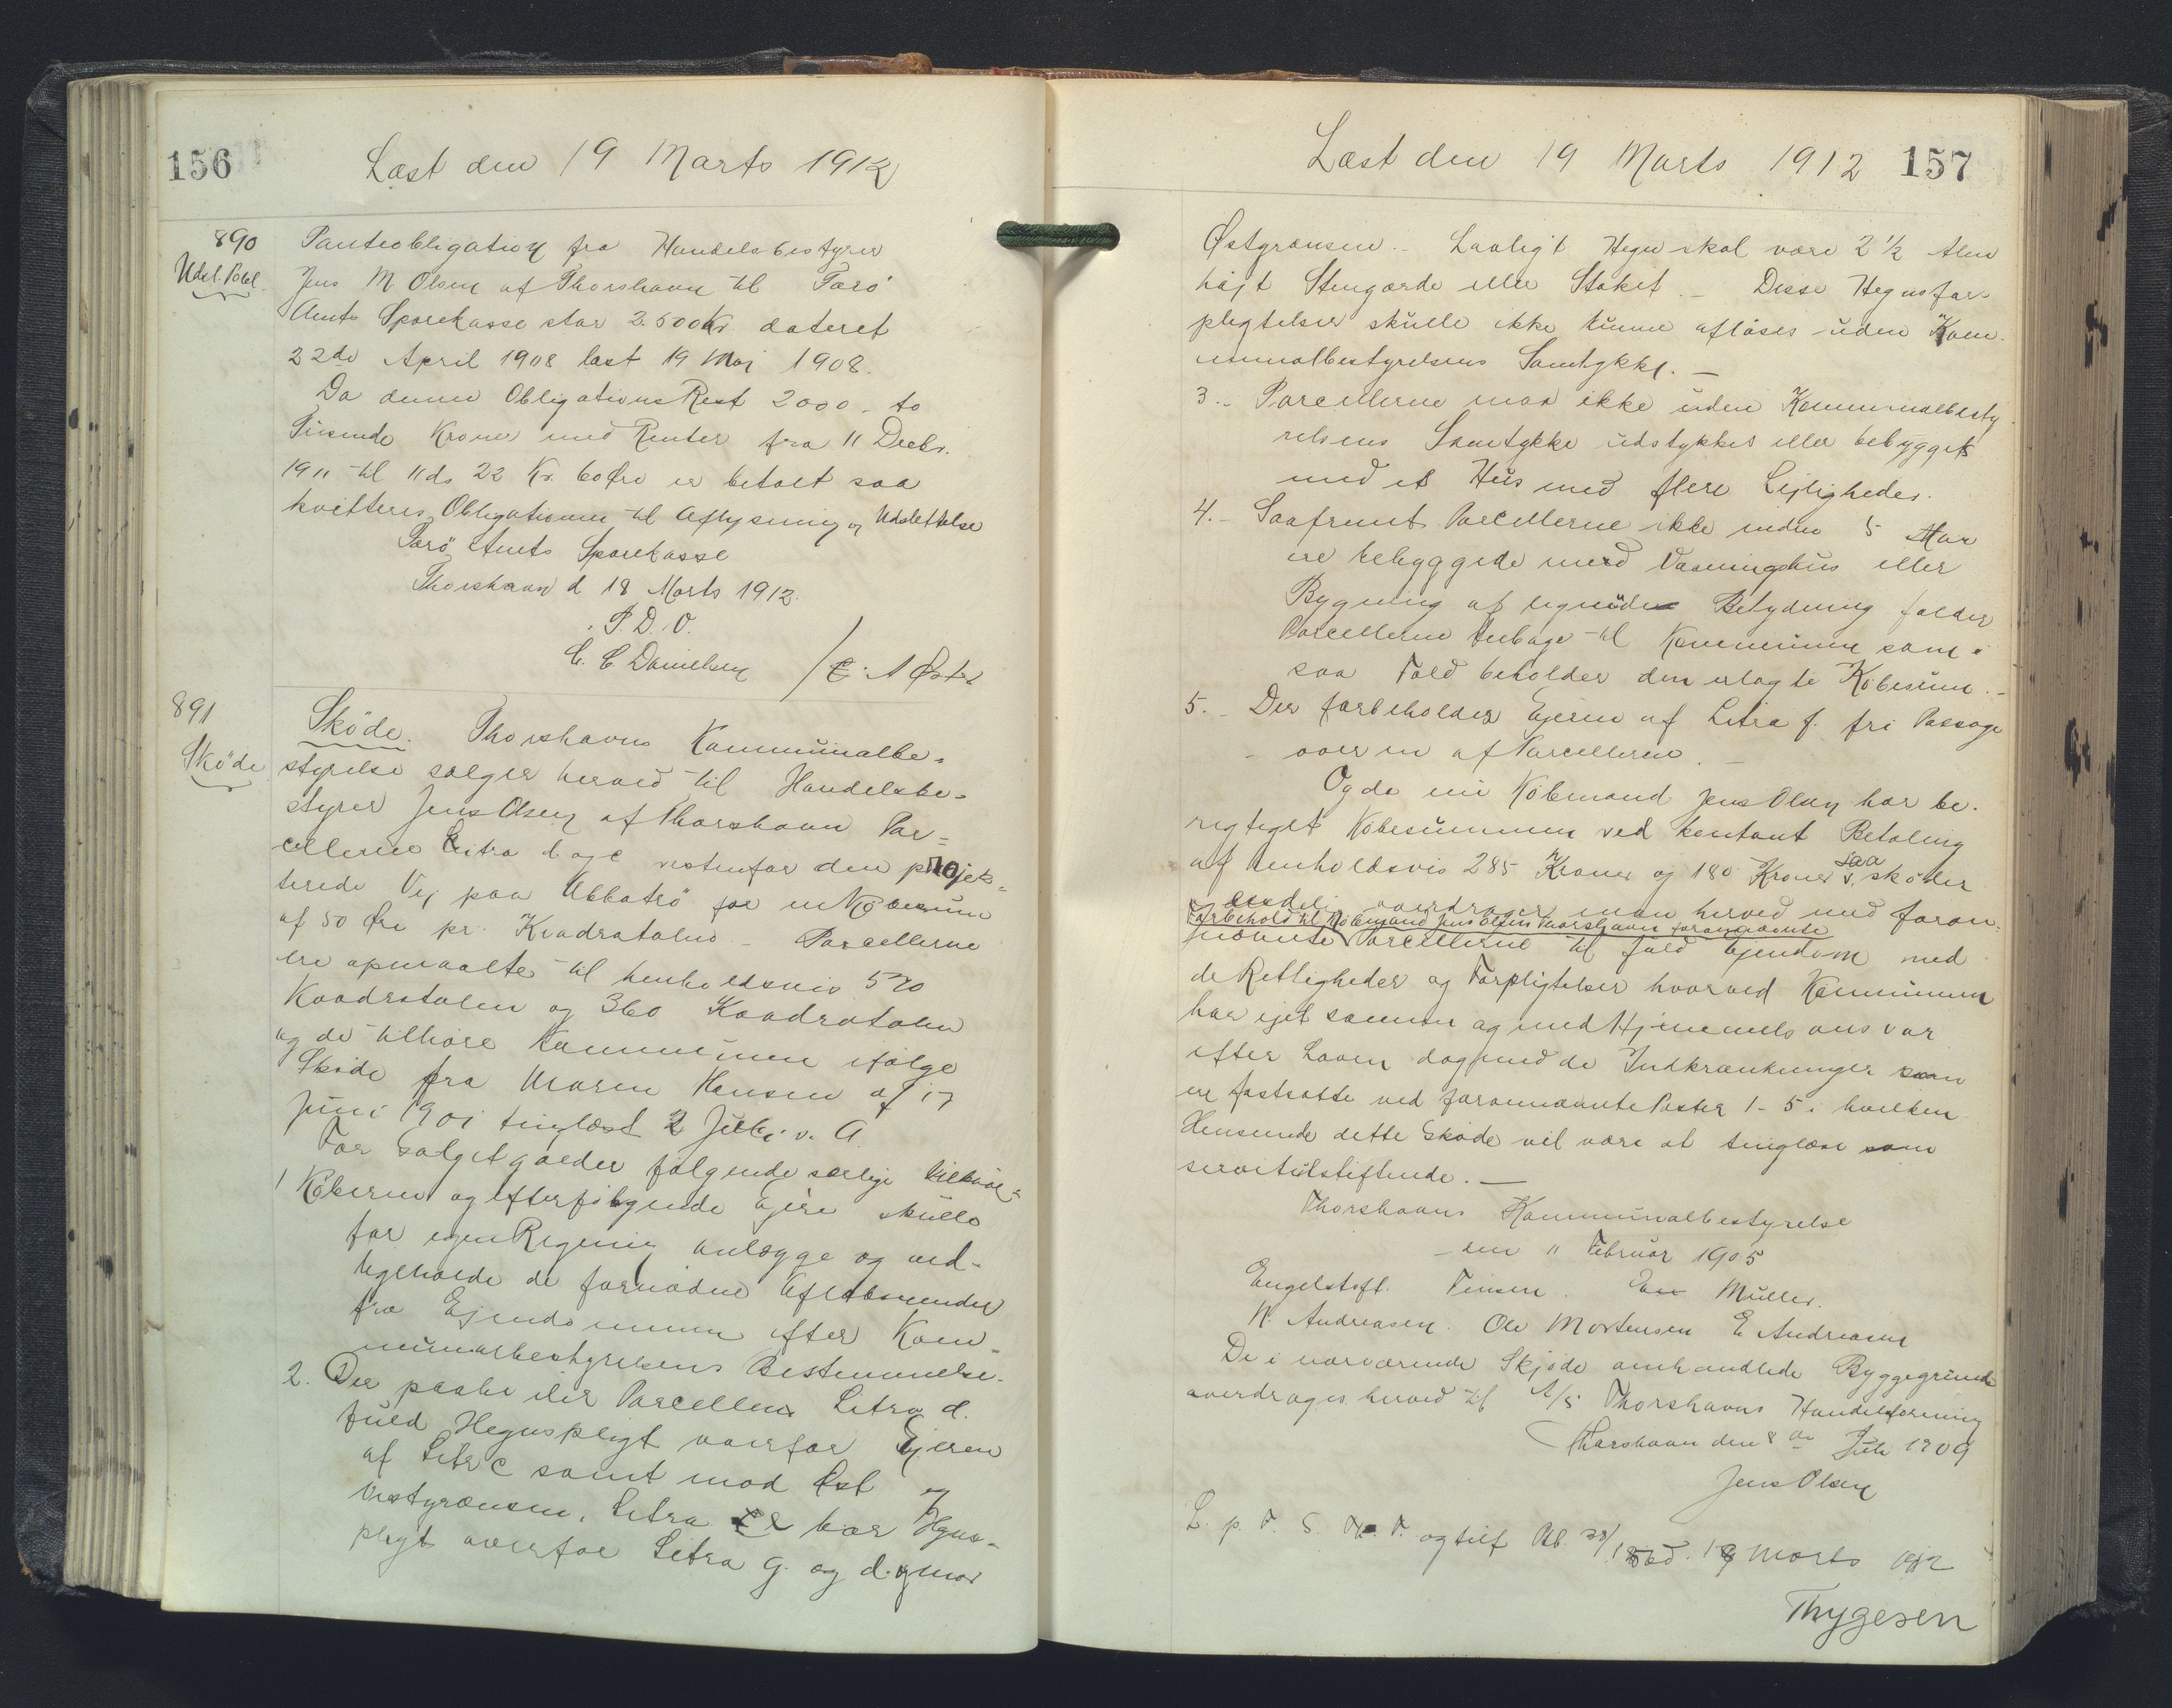 156
Læst den 19 Marts 1912
890
Udsl. Obl.
Panteobligation fra Handelsbestyrer
Jens M Olsen af Thorshavn til Færö
Amts Sparekasse stor 2.500 Kr. dateret
22de April 1908 læst 19 Maj 1908.
Da denne Obligations Rest 2000 - to
Tusende Kroner med Renter fra 11 Decbr.
1911 til 11 ds 22 Kr. 60 Øre er betalt saa
kvitteres Obligationen til Aflysning og Udslettelse
Færö Amts Sparekasse
Thorshavn d 18 Marts 1912.
P. D. V.
C. C Danielsen /
891
Sköde
Sköde. Thorshavns Kommunalbe-
styrelse sælger herved til Handelsbe-
styrer Jens Olsen af Thorshavn Par-
cellerne Litra d og e vestenfor den projek-
terede Vej paa Ubbatrö for en Köbesum
af 50 Øre pr. Kvadratalen - Parcellerne
ere opmaalte til henholdsvis 570
Kvadratalen og 360 Kvadratalen
og de tilhöre Kommunen ifölge
Sköde fra Maren Hansen af 17
Juni 1901 tinglæst 2 Juli s. A.
For Salget gælder fölgende særlige Vilkaar:
1 Köberen og efterfölgende Ejere skulle
for egen Regning anlægge og ved-
ligeholde de fornödne Aflöbsrender
fra Ejendommen efter Kom-
munalbestyrelsens Bestemmelse.
2. Der paahviler Parcellen Litra d.
fuld Hegnspligt overfor Ejeren
af Litr c samt mod Øst og
Vestgrænsen, Litra e har Hegns-
pligt overfor Litra g. og d. og mod
Læst den 19 Marts 1912 157
Østgrænsen. - Lovligt Hegn skal være 2 1/2 Alen
höjt Stengærde eller Stakit. - Disse Hegnsfor-
pligtelser skulle ikke kunne aflöses uden Kom-
munalbestyrelsens Samtykke. -
3. - Parcellerne maa ikke uden Kommunalbesty
relsens Samtykke udstykkes eller bebygges
med et Hus med flere Lejligheder.
4. - Saafremt Parcellerne ikke inden 5 Aar
ere bebyggede med Vaaningshus eller
Bygning af lignende Betydning falder
Parcellerne tilbage til Kommunen som i
saa Fald beholder den erlagte Köbesum. -
5. - Der forbeholdes Ejeren af Litra f. fri Passage
over en af Parcellerne. -
Og da nu Köbmand Jens Olsen har be-
rigtiget Köbesummen ved kontant Betaling
af henholdsvis 285 Kroner og 180 Kroner saa sköder
endelig overdrager man herved med foran-
Forbehold til Köbmand Jens Olsen Thorshavn forannævnte
nævnte Parcellerne til fuld Ejendom med
de Rettigheder og Forpligtelser hvorved Kommunen
har ejet samme og med Hjemmels ansvar
efter Loven dog med de Indskrænkninger som
ere fastsatte ved forannævnte Poster 1 - 5 i hvilken
Henseende dette Sköde vil være at tinglæse som
servitutstiftende. -
Thorshavns Kommunalbestyrelse
den 11 Februar 1905
Engelstoft. Finsen. Müller.
N. Andreasen. Ole Mortensen E. Andreasen
De i nærværende Skjöde omhandlede Byggegrunde
overdrages herved til A/S Thorshavns Handelsforening
Thorshavn den 8de Juli 1909
Jens Olsen
L. p. F. S. Th. F. og tilf Rb. d. 19 Marts 1912
Thygesen